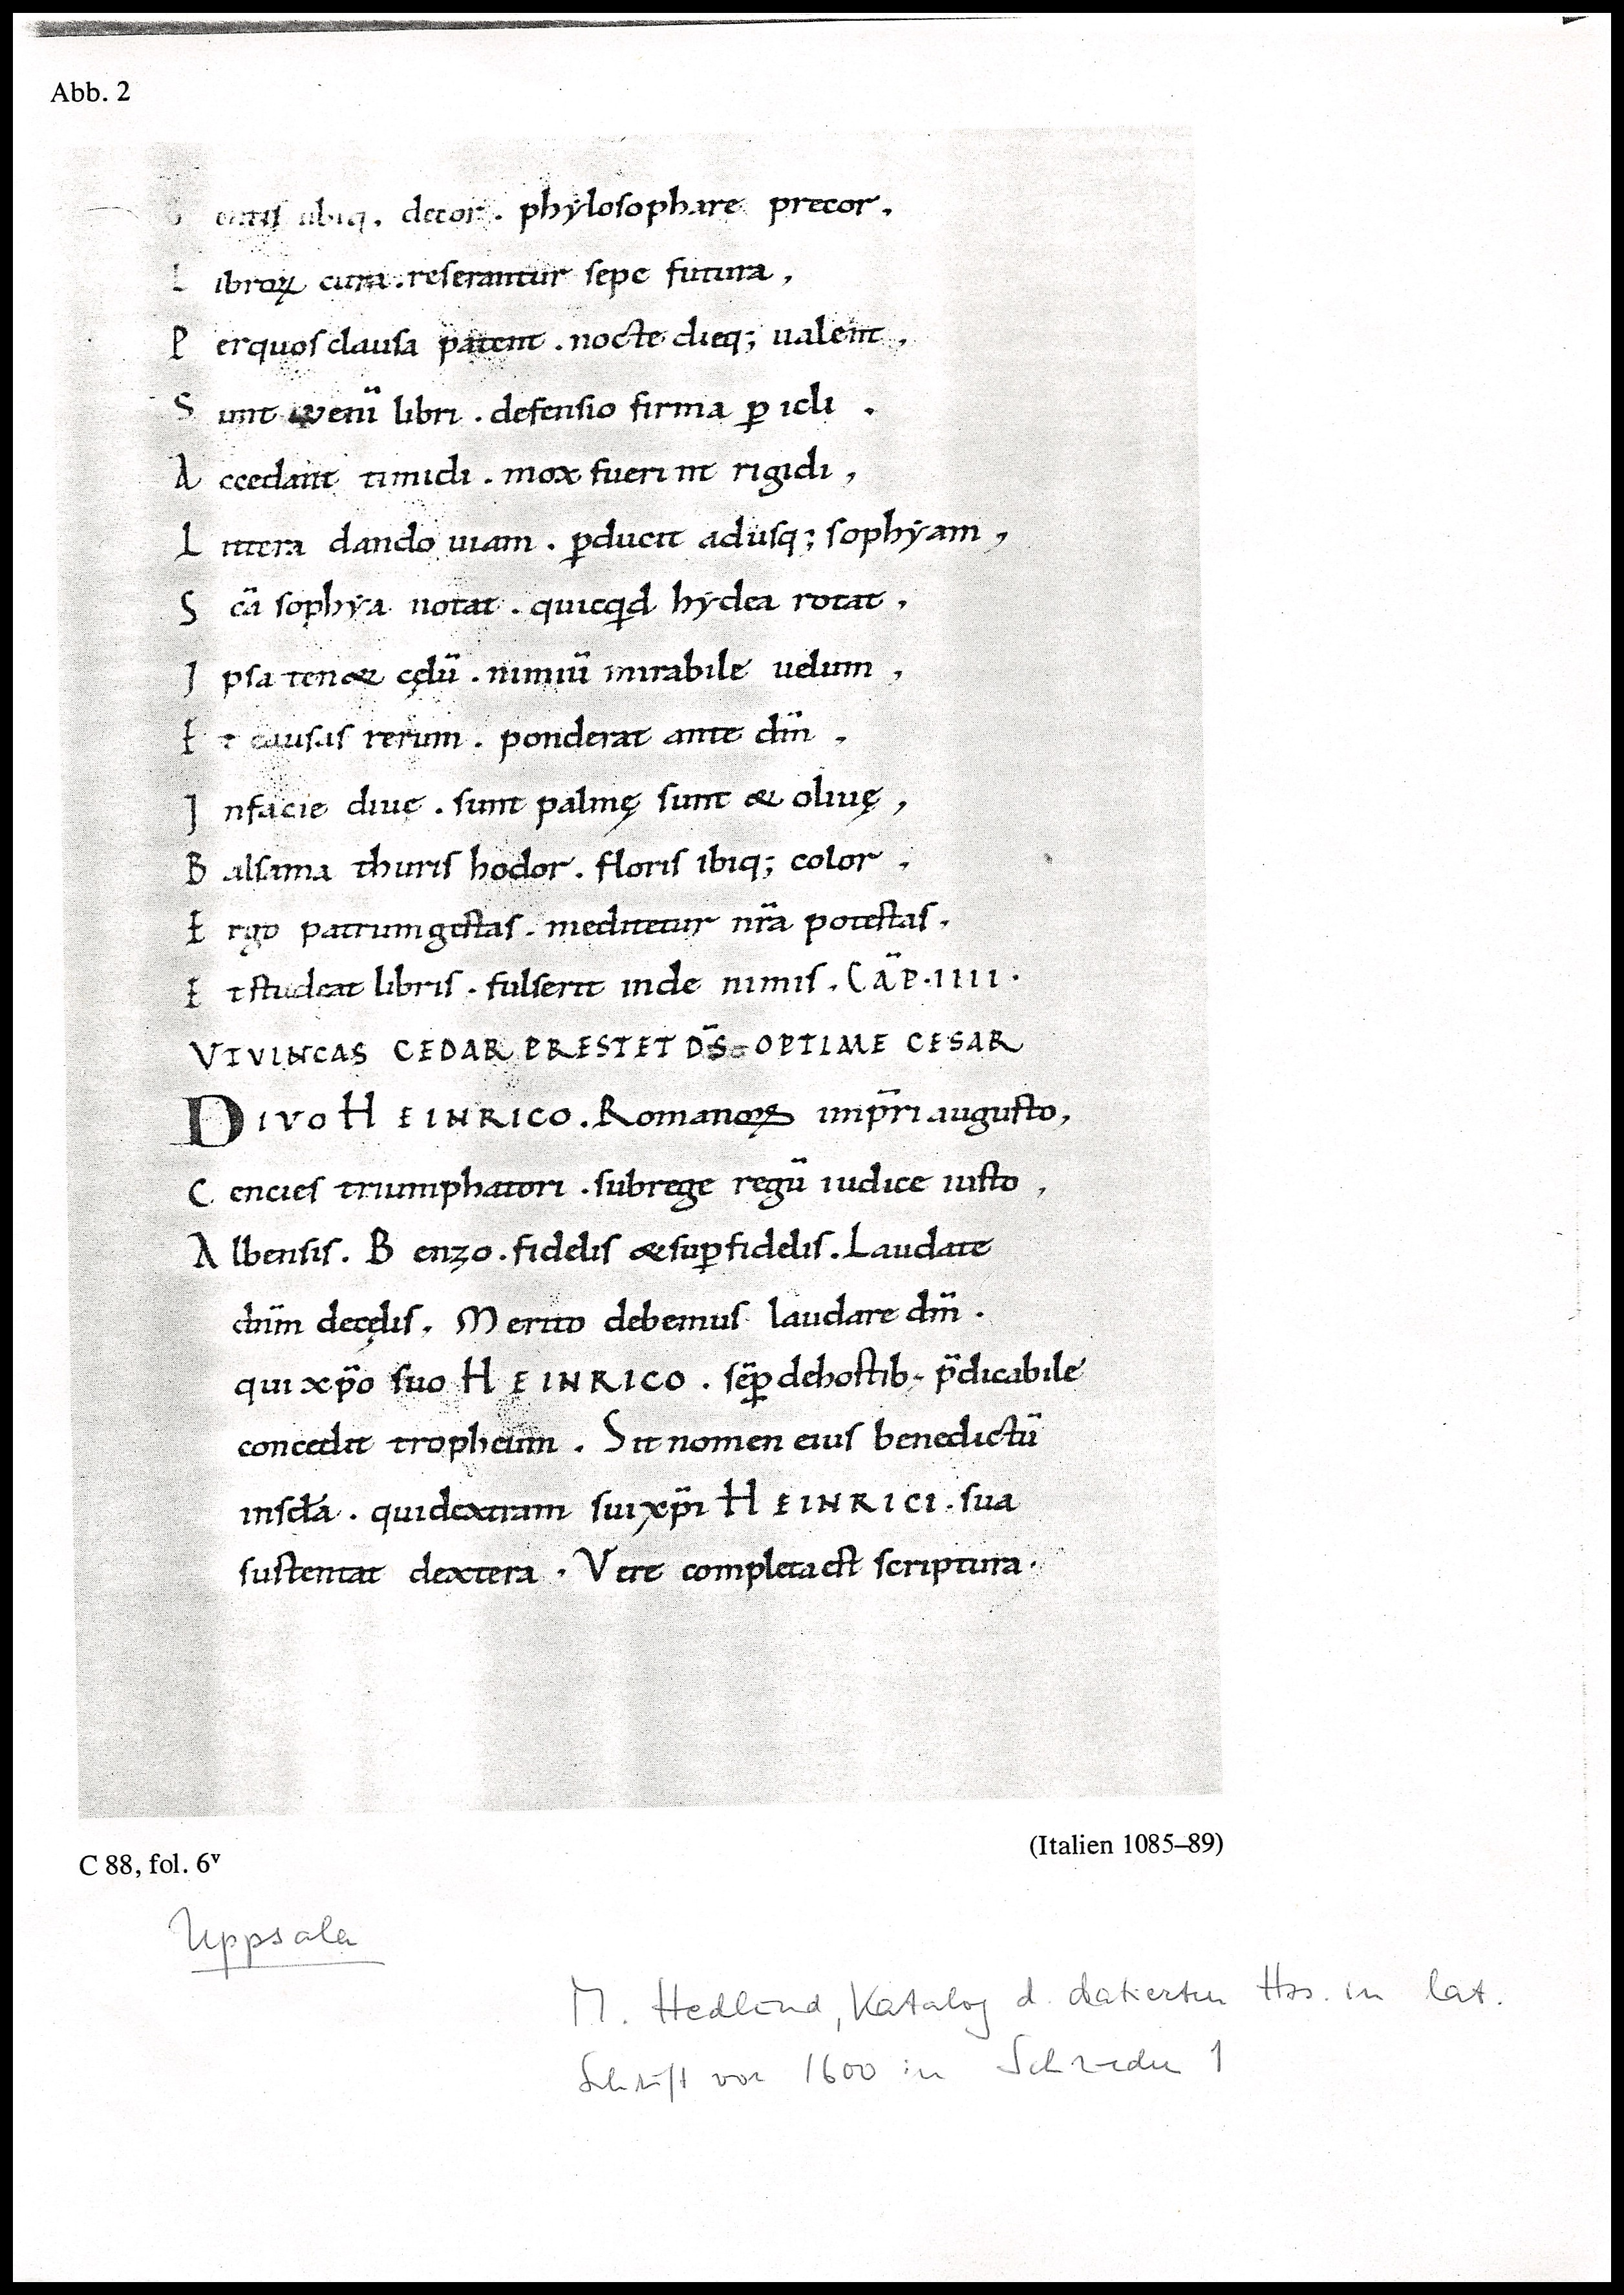 Abb. 2
ubiq. decor. phẏlosophare precor.
L ibroꝝ cura. reserantur sepe futura,
P erquos clausa patent. nocte dieq; ualent,
S unt iuuenū libri. defensio firma ꝑicli.
A ccedant timidi. mox fuerint rigidi,
L ittera dando uiam. ꝑducit adusq; sophẏam,
S cā sophẏa notat. quicqđ hẏdea rotat,
I psa ten& cęlū. nimiū mirabile uelum,
E t causas rerum. ponderat ante dm̄.
I nfacie diuę. sunt palmę sunt & oliuę,
B alsama thuris hodor. floris ibiq; color,
E rgo patrum gestas. meditetur nr̄a potestas.
E t studeat libris. fulserit inde nimis. CAP̄.IIII.
VTVINCAS CEDAR PRESTET DS̄ OPTIME CESAR
DIVO HEINRICO. Romanoꝝ imp̄ri augusto,
C encies triumphatori. subrege regū iudice iusto,
A lbensis. Benzo. fidelis &suꝑfidelis. Laudate
dnm̄ decęlis. Merito debemus laudare dm̄.
qui xp̄o suo HEINRICO. sēꝑ dehostib; p̄dicabile
concedit tropheum. Sit nomen eius benedictū
inscła. quidextram sui xp̄i HEINRICI. sua
sustentat dextera. Vere completa est scriptura.
C 88, fol. 6ᵛ
(Italien 1085–89)
Uppsala
M. Hedlund, Katalog d. datierten Hss. in lat.
Schrift vor 1600 in Schweden 1